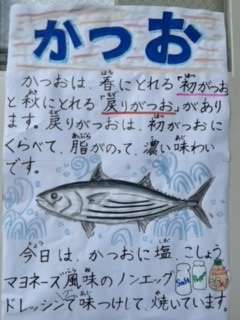 かつお
かつおは、春にとれる「初がつお」
と秋にとれる「戻りがつお」があり
ます。戻りがつおは、初がつおに
くらべて、脂がのって、濃い味わい
です。
今日は、かつおに塩、こしょう
マヨネーズ風味のノンエッグ
ドレッシングで味つけして、焼いています。